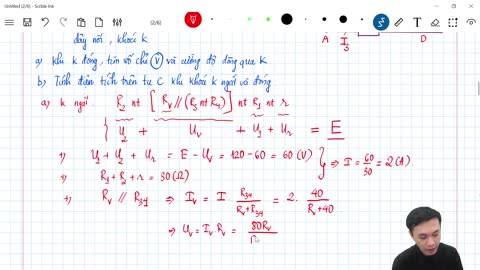 Untitled (2/6) - Scrble Ink
(2/6)
dây nối , khoá k
A I₃ D
a) khi k đóng, tìm vố chỉ (V) và cường độ dòng qua k
b) Tính điện tích trên tụ C khi khoá k ngắt và đóng
a) k ngắt R₂ nt [R_V // (R₃ nt R₄)] nt R₁ nt r
{ U₂ + U_V + U₁ + U_r = E
⇒ U₁ + U₂ + U_r = E − U_V = 120 − 60 = 60 (V) } ⇒ I = 60/30 = 2 (A).
⇒ R₁ + R₂ + r = 30 (Ω)
⇒ R_V // R₃₄ ⇒ I_V = I R₃₄/(R_V + R₃₄) = 2. 40/(R_V + 40)
⇒ U_V = I_V R_V = 80R_V